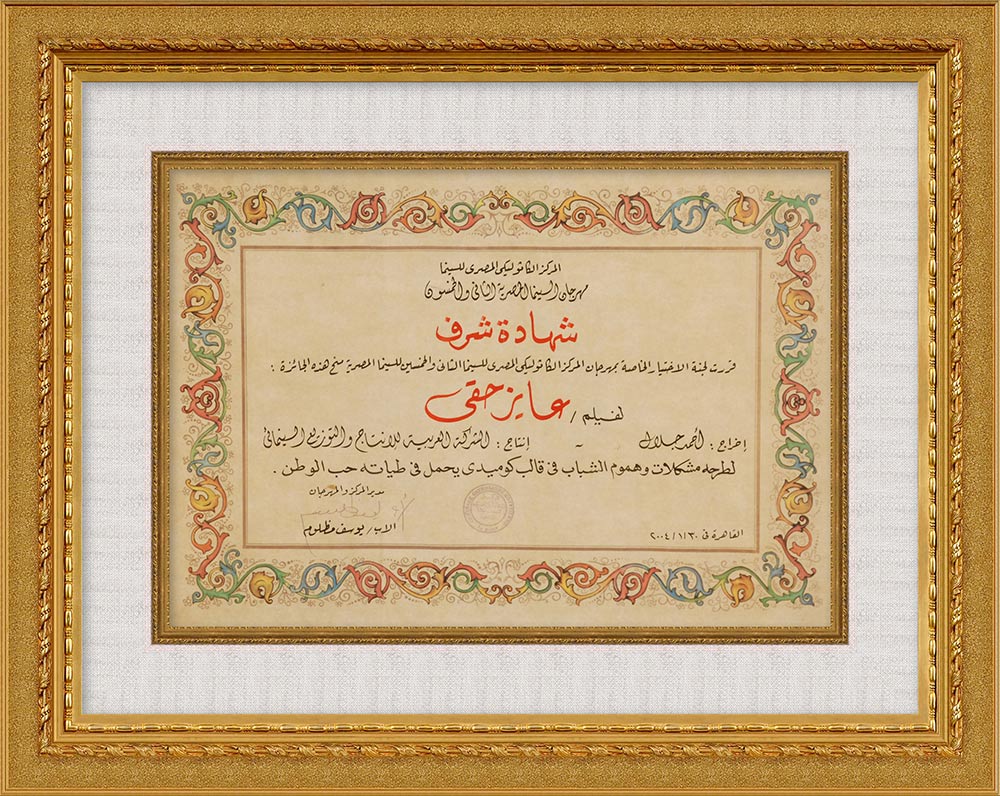 المركز الكاثوليكى المصرى للسينما
مهرجان السينما المصرية الثانى والخمسون
شهادة شرف
قررت لجنة الاختيار الخاصة بمهرجان المركز الكاثوليكى المصرى للسينما الثانى والخمسين للسينما المصرية منح هذه الجائزة :
لفيلم / عايز حقى
إخراج : أحمد جلال - إنتاج : الشركة العربية للانتاج والتوزيع السينمائى
لطرحه مشكلات وهموم الشباب فى قالب كوميدى يحمل فى طياته حب الوطن .
مدير المركز والمهرجان
الاب / يوسف مظلوم
القاهرة فى ٣٠ / ١ / ٢٠٠٤